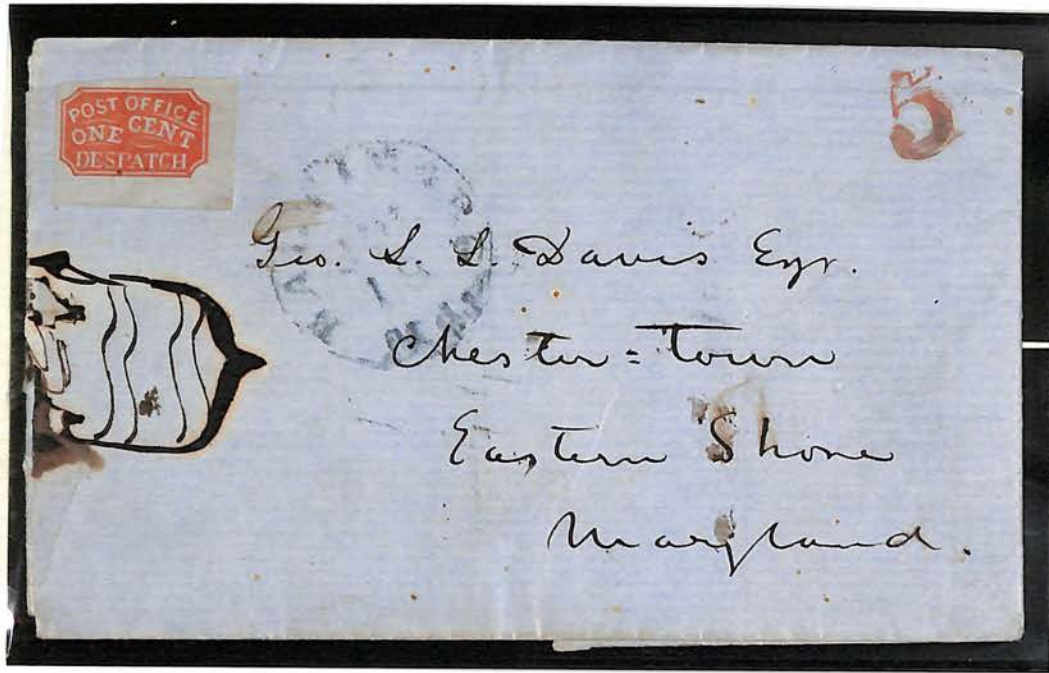 POST OFFICE
ONE CENT
DESPATCH
5
Geo. S. L. Davis Esqr.
Chester=town
Eastern Shore
Maryland.